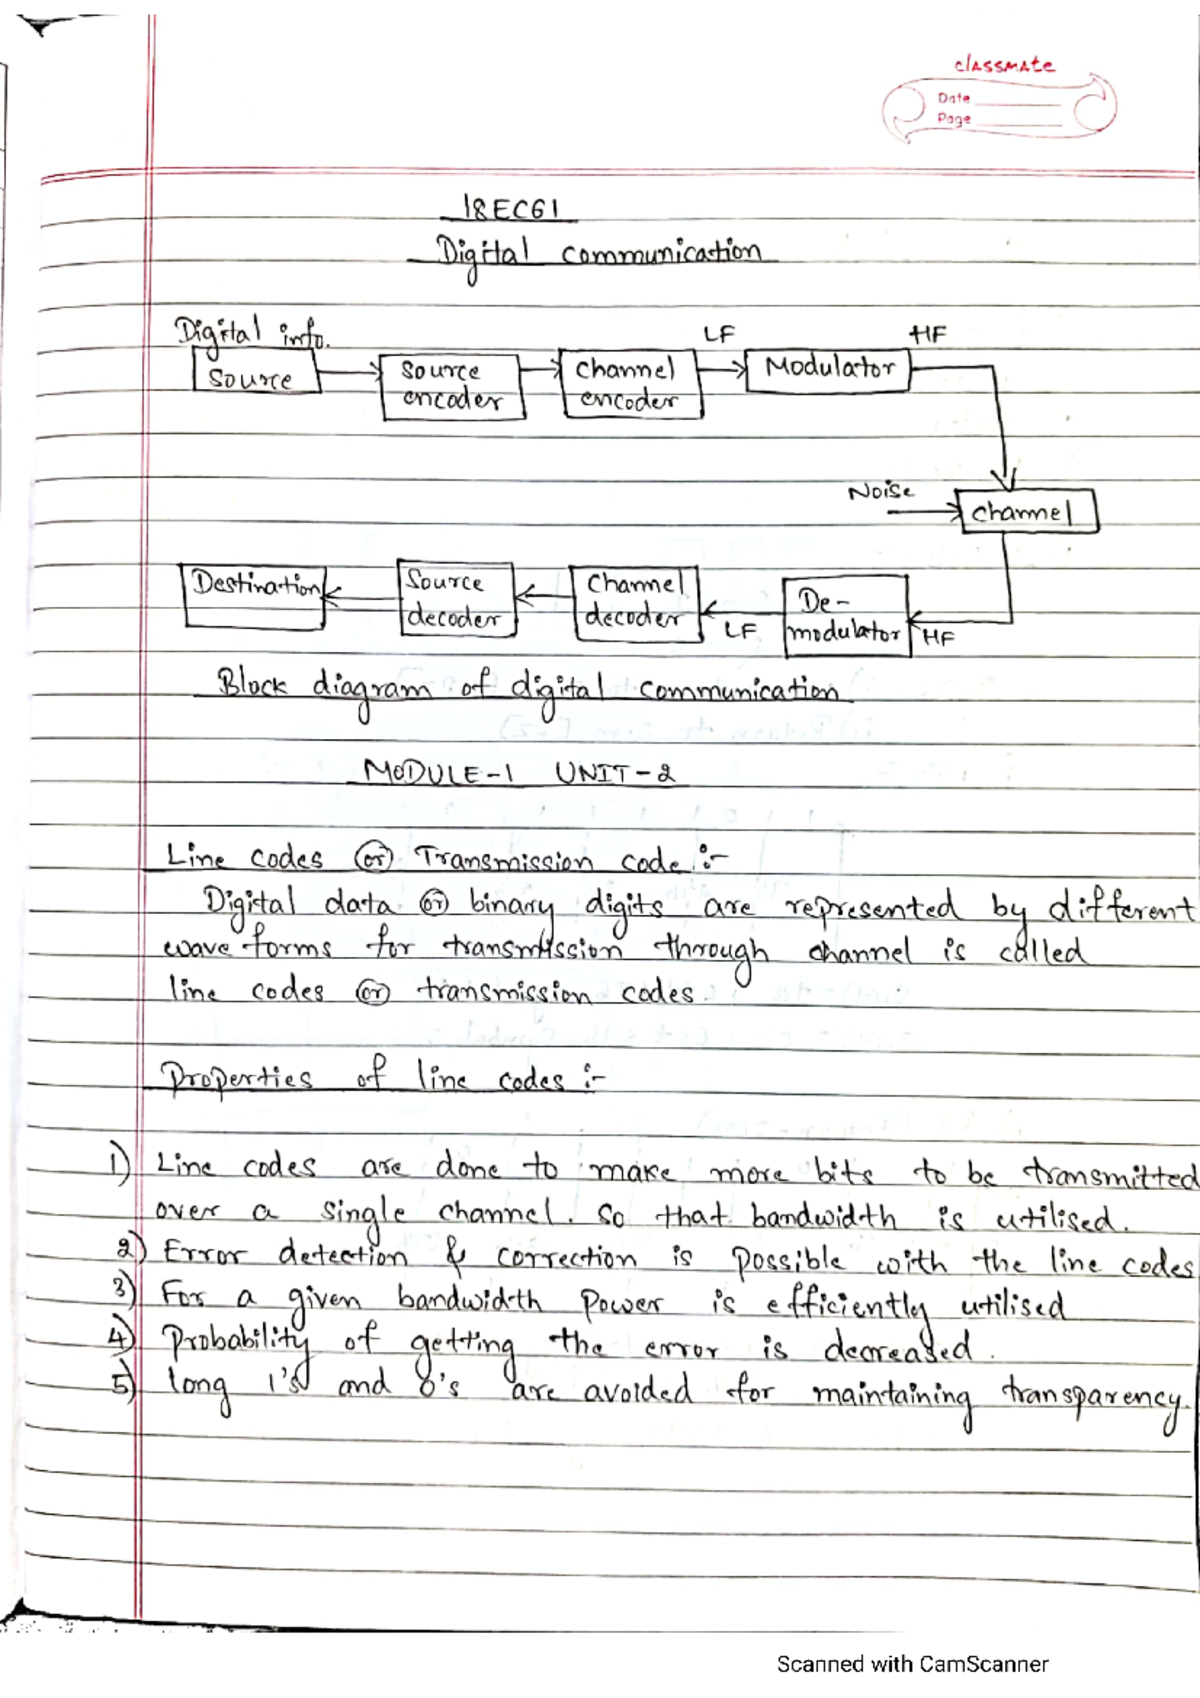 classmate
Date
Page
18EC61
Digital communication
Digital info.
LF
HF
Source
Source
encoder
Channel
encoder
Modulator
Noise
channel
Destination
Source
decoder
Channel
decoder
LF
De-
modulator
HF
Block diagram of digital communication
MODULE-1 UNIT-2
Line codes or Transmission code :-
Digital data or binary digits are represented by different
wave forms for transmission through channel is called
line codes or transmission codes.
Properties of line codes :-
1) Line codes are done to make more bits to be transmitted
over a single channel. So that bandwidth is utilised.
2) Error detection & correction is possible with the line codes
3) For a given bandwidth power is efficiently utilised
4) Probability of getting the error is decreased.
5) long 1's and 0's are avoided for maintaining transparency.
Scanned with CamScanner